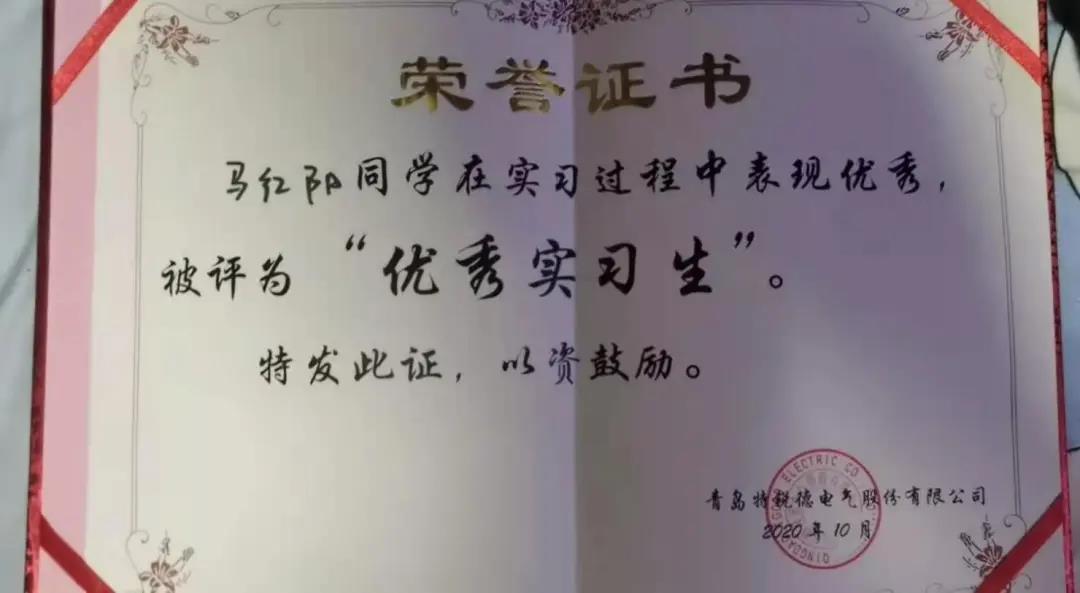 荣誉证书
马红阳同学在实习过程中表现优秀，
被评为“优秀实习生”。
特发此证，以资鼓励。
青岛特锐德电气股份有限公司
2020年10月
ELECTRIC CO